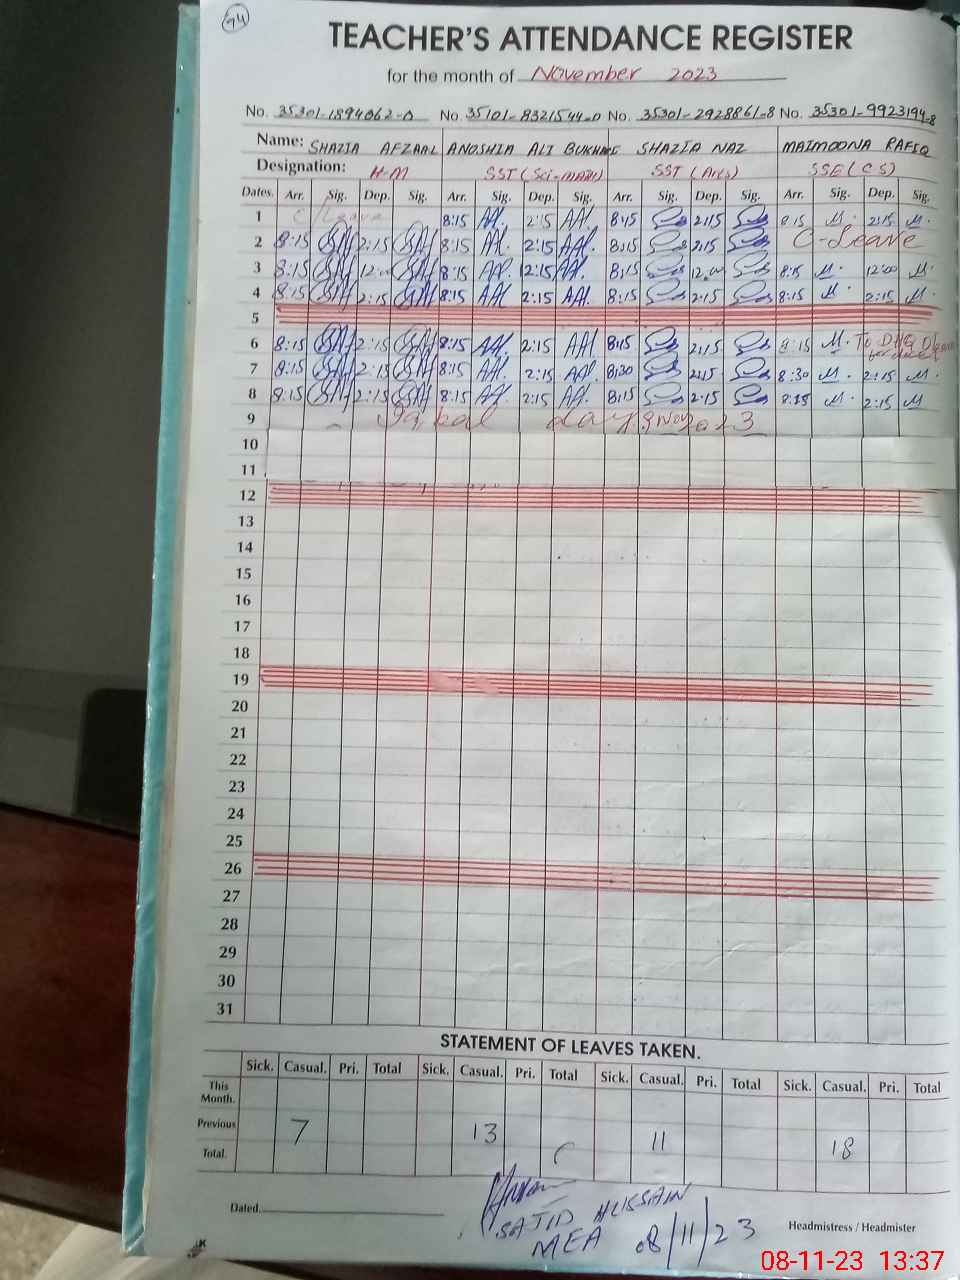 94
TEACHER'S ATTENDANCE REGISTER
for the month of November 2023
No. 35301-1894062-0 No. 35101-8321544-0 No. 35301-2928861-8 No. 35301-9923194-8
Name: SHAZIA AFZAAL ANOSHIA ALI BUKHARI SHAZIA NAZ MAIMOONA RAFIQ
Designation: H-M SST (Sci-math) SST (Arts) SSE (CS)
Dates. Arr. Sig. Dep. Sig. Arr. Sig. Dep. Sig. Arr. Sig. Dep. Sig. Arr. Sig. Dep. Sig.
1 C/Leave 8:15 2:15 8:15 2:15 8:15 M. 2:15 M.
2 8:15 2:15 8:15 2:15 8:15 2:15 C-Leave
3 8:15 12:00 8:15 12:15 8:15 12:00 8:15 M. 12:00 M.
4 8:15 2:15 8:15 2:15 8:15 2:15 8:15 M. 2:15 M.
5
6 8:15 2:15 8:15 2:15 8:15 2:15 8:15 M. To
7 8:15 2:15 8:15 2:15 8:30 2:15 8:30 M. 2:15 M.
8 8:15 2:15 8:15 2:15 8:15 2:15 8:15 M. 2:15 M
9 Iqbal day 9 Nov 2023
10
11
12
13
14
15
16
17
18
19
20
21
22
23
24
25
26
27
28
29
30
31
STATEMENT OF LEAVES TAKEN.
Sick. Casual. Pri. Total Sick. Casual. Pri. Total Sick. Casual. Pri. Total Sick. Casual. Pri. Total
This Month.
Previous 7 13 11 18
Total.
Dated.
SAJID HUSSAIN
MEA 08/11/23
Headmistress / Headmister
08-11-23 13:37